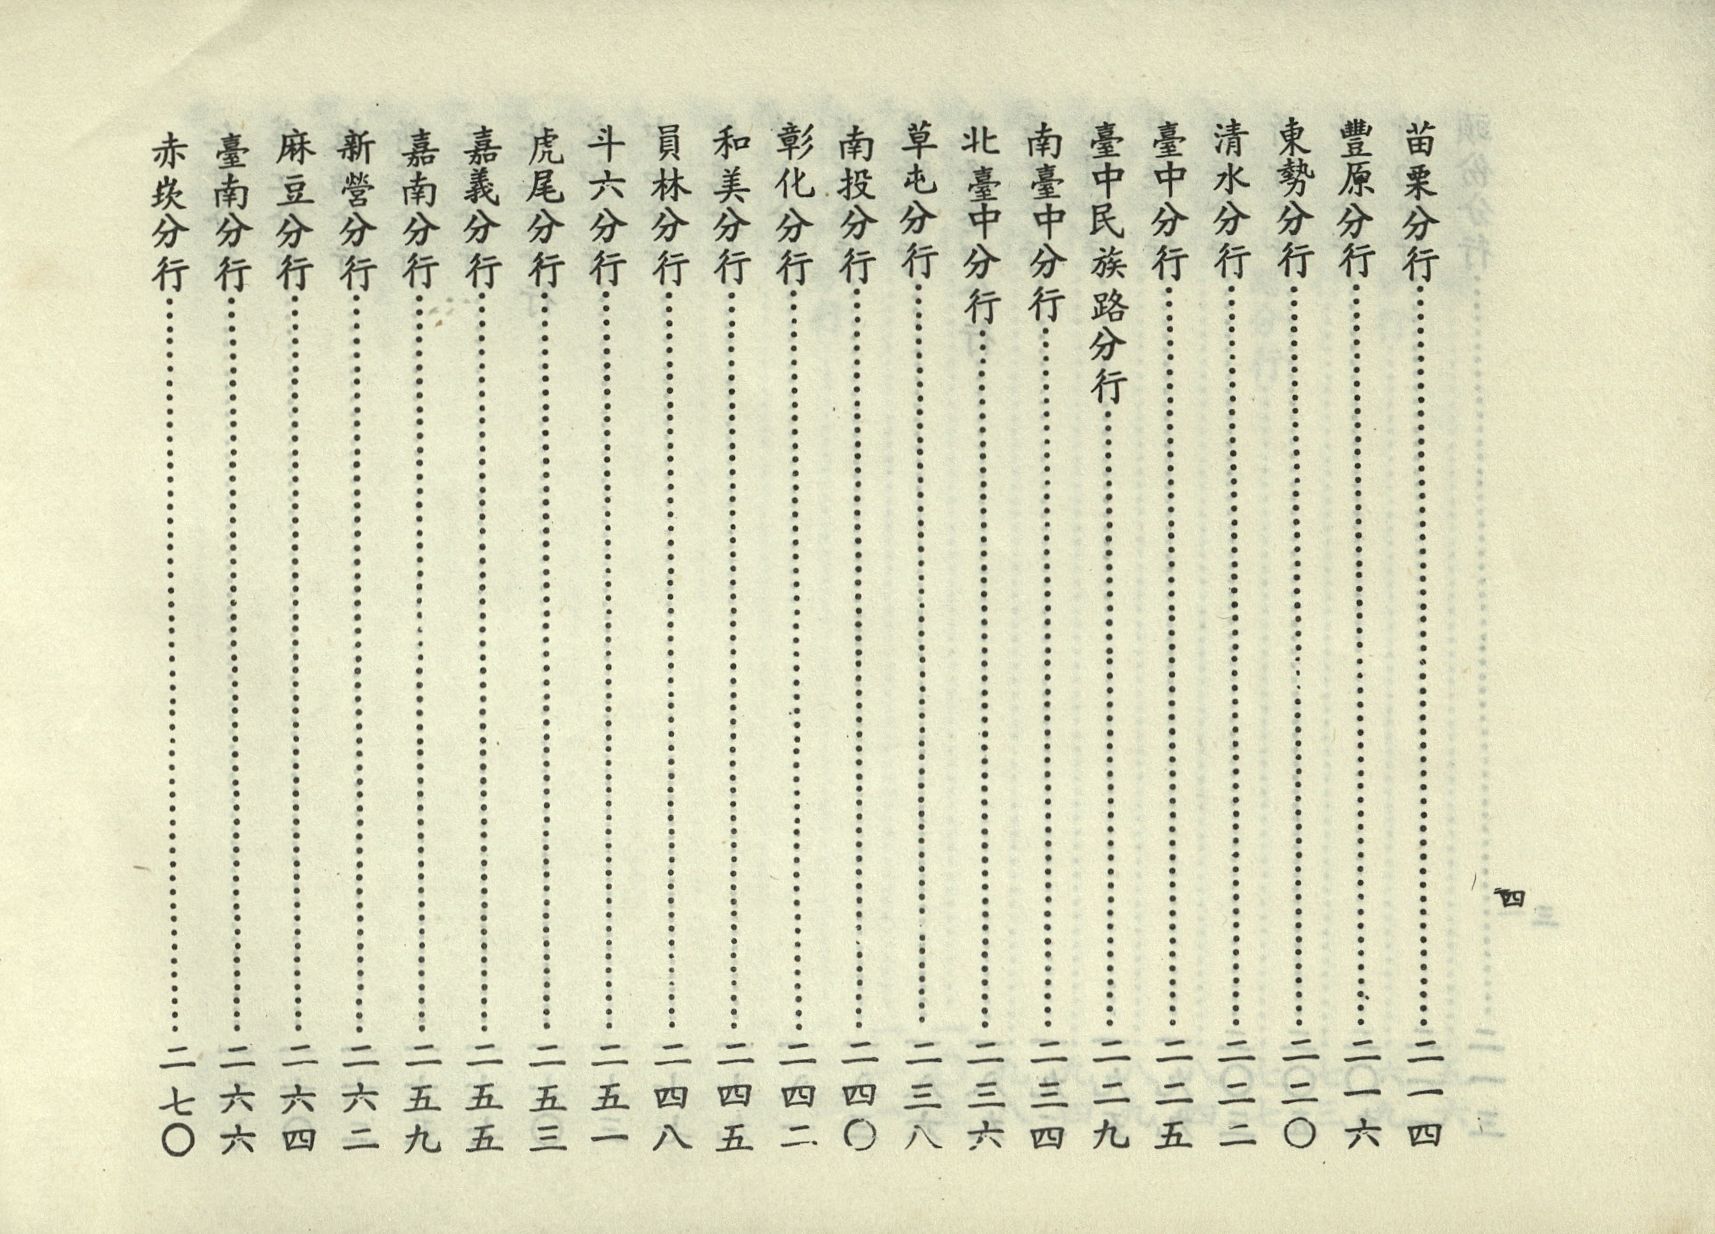 苗栗分行………二一四
豐原分行………二一六
東勢分行………二二〇
清水分行………二二二
臺中分行………二二五
臺中民族路分行………二二九
南臺中分行………二三四
北臺中分行………二三六
草屯分行………二三八
南投分行………二四〇
彰化分行………二四二
和美分行………二四五
員林分行………二四八
斗六分行………二五一
虎尾分行………二五三
嘉義分行………二五五
嘉南分行………二五九
新營分行………二六二
麻豆分行………二六四
臺南分行………二六六
赤崁分行………二七〇
四